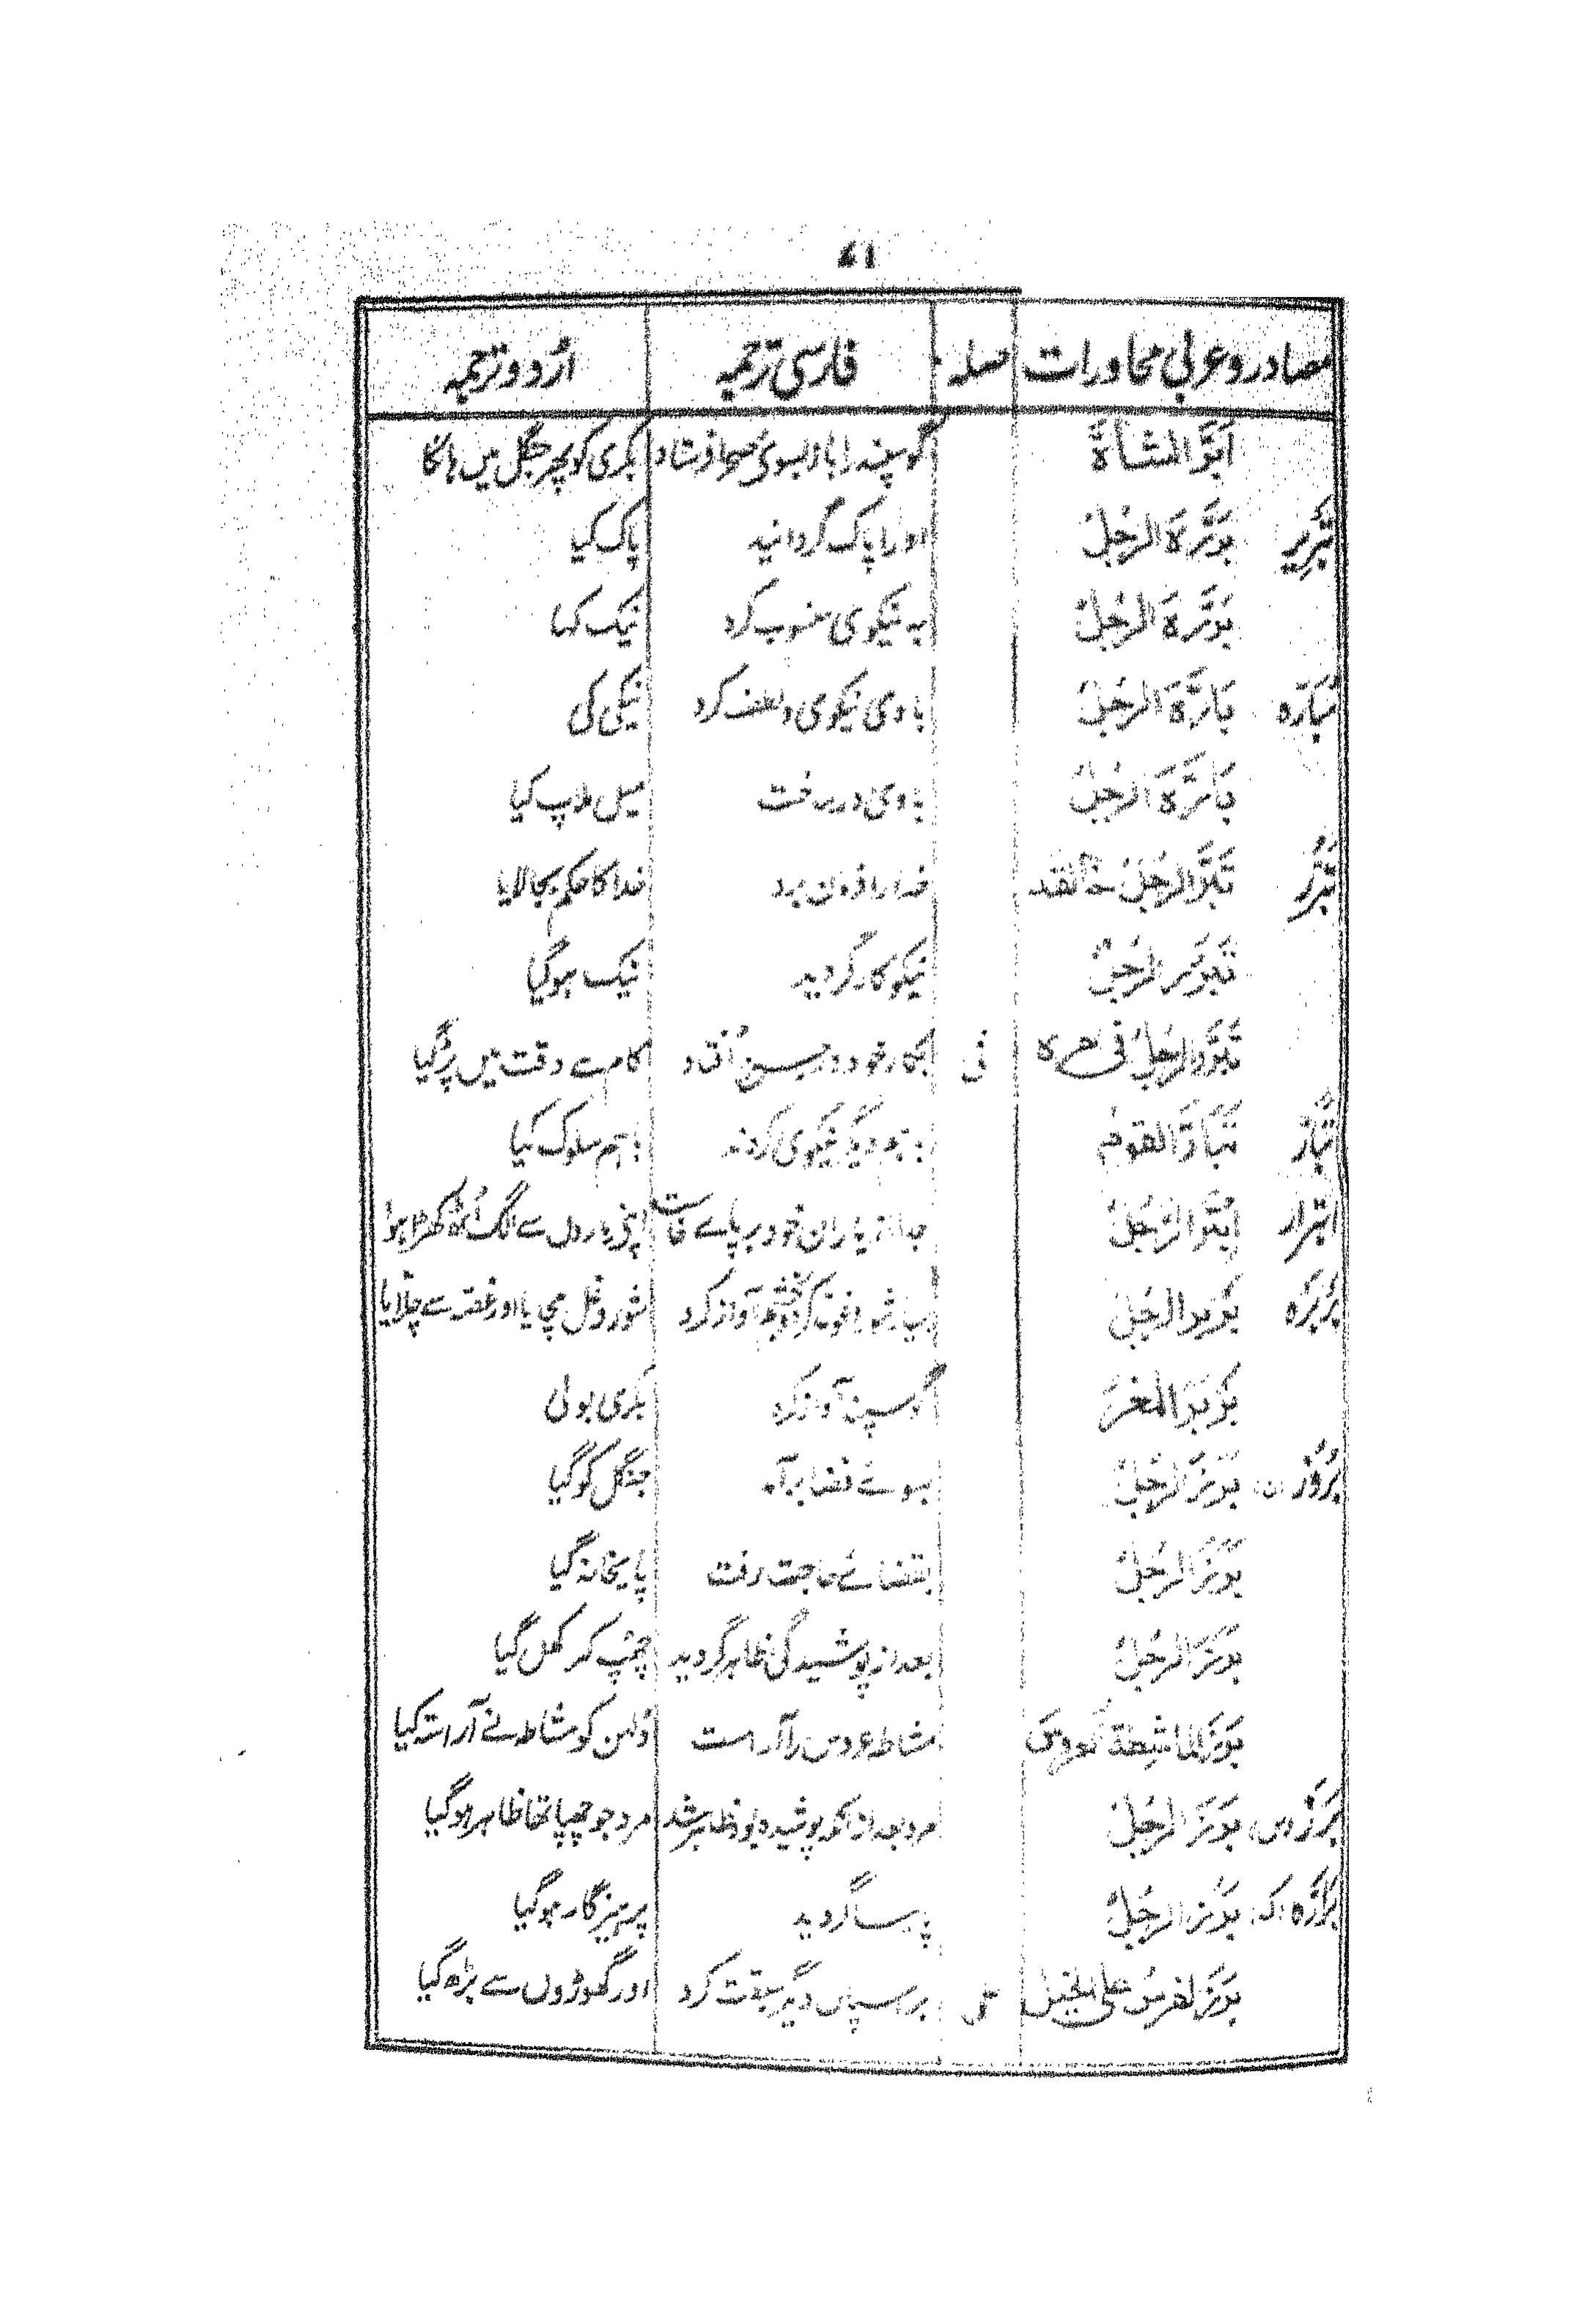 61
مصادر و عربی محاورات صلہ فارسی ترجمہ اُردو ترجمہ
اَبَرَّ الشاۃَ گوسپند را باز بسوی صحرا فرستاد بکری کو پھر جنگل میں ہانکا
تَبرِیر بَرَّرَہٗ الرَجُلُ اورا پاک گردانید پاک کیا
بَرَّرَہٗ الرَجُلُ بہ نیکوی منسوب کرد نیک کہا
مُبَارّہ بَارَّہٗ الرَجُلُ با وی نیکوی و لطف کرد نیکی کی
بَارَّہٗ الرَجُلُ با وی میل ملاپ کیا
تَبَرُّر تَبَرَّرَ الرَجُلُ خالقہ خدا را فرمان برد خدا کا حکم بجالایا
تَبَرَّرَ الرَجُلُ نیکو کار گردید نیک ہوگیا
تَبَرَّرَ الرَجُلُ فی امرہ فی بکار خود در افتاد کام سے دقت میں پڑ گیا
تَبَارّ تَبَارَّ القومُ باہمدیگر نیکوی کردند باہم سلوک کیا
ابترار اِبتَرَّ الرَجُلُ جدا از یاران خود بر پاے خاست اپنی یاروں سے الگ اُٹھ کھڑا ہوا
بَربَرَہ بَربَرَ الرَجُلُ آواز کرد شور و غل مچایا اور غصہ سے چلّایا
بَربَرَ المَعزُ گوسپند آواز کرد بکری بولی
بُرُوز (ن) بَرَزَ الرَجُلُ بسوئے فضا برآمد جنگل کو گیا
بَرَزَ الرَجُلُ بقضائے حاجت رفت پایخانہ گیا
بَرَزَ الرَجُلُ بعد از پوشیدگی ظاہر گردید چھپ کر کھل گیا
بَرَزَ الماشِطۃ العروسَ مشاطہ عروس را آراست دُلہن کو مشاطہ نے آراستہ کیا
بَرَز (س) بَرِزَ الرَجُلُ مرد بعد از آنکہ پوشیدہ بود ظاہر شد مرد جو چھپا تھا ظاہر ہوگیا
بَرَازَہ (ک) بَرُزَ الرَجُلُ پارسا گردید پرہیزگار ہوگیا
بَرَزَ الفرسُ علی الخیل علی بر اسپان دیگر سبقت کرد اور گھوڑوں سے بڑھ گیا